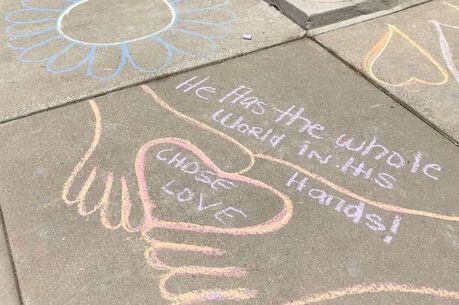 He Has the whole
World in His
Hands!
CHOSE
LOVE